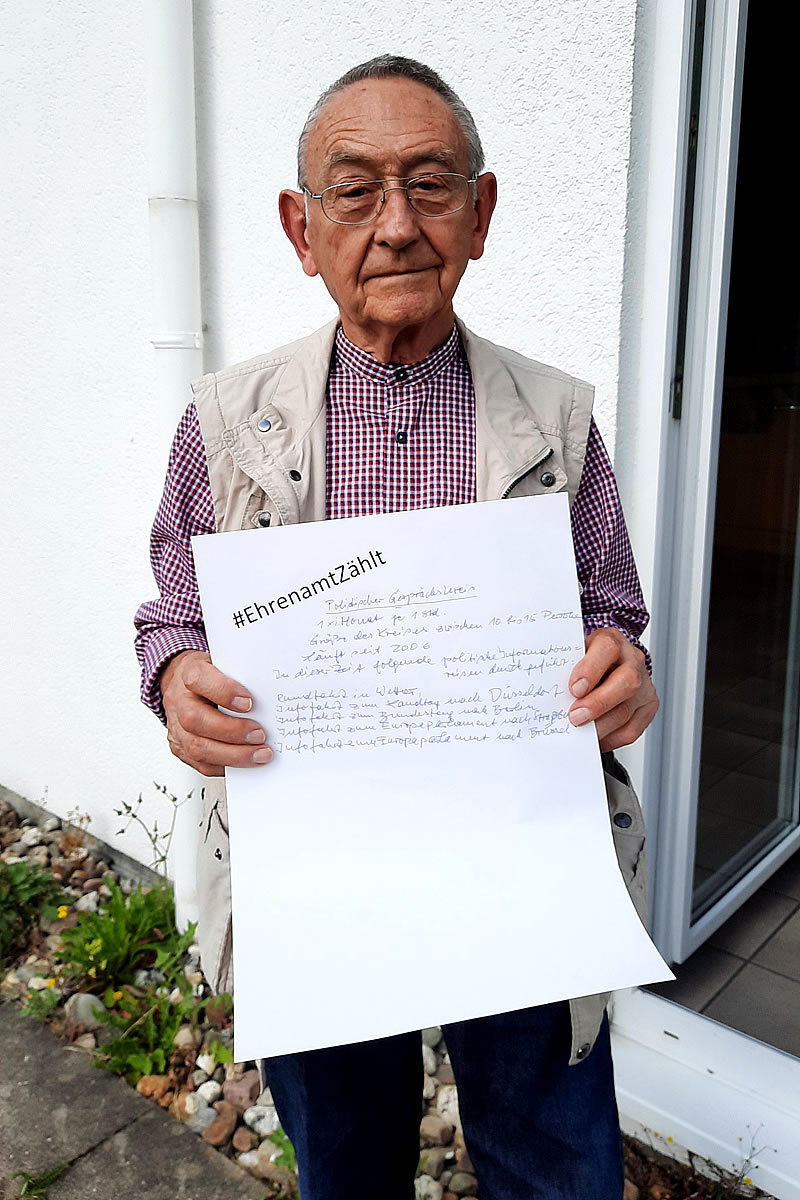 #EhrenamtZählt
Politischer Gesprächskreis
1 x i. Monat je 1 Std.
Größe des Kreises zwischen 10 bis 15 Personen
Läuft seit 2006
In dieser Zeit folgende politische Informations=
reisen durchgeführt:
Rundfahrt in Wetter,
Infofahrt zum Landtag nach Düsseldorf
Infofahrt zum Bundestag nach Berlin
Infofahrt zum Europaparlament nach Straßbg
Infofahrt zum Europaparlament nach Brüssel